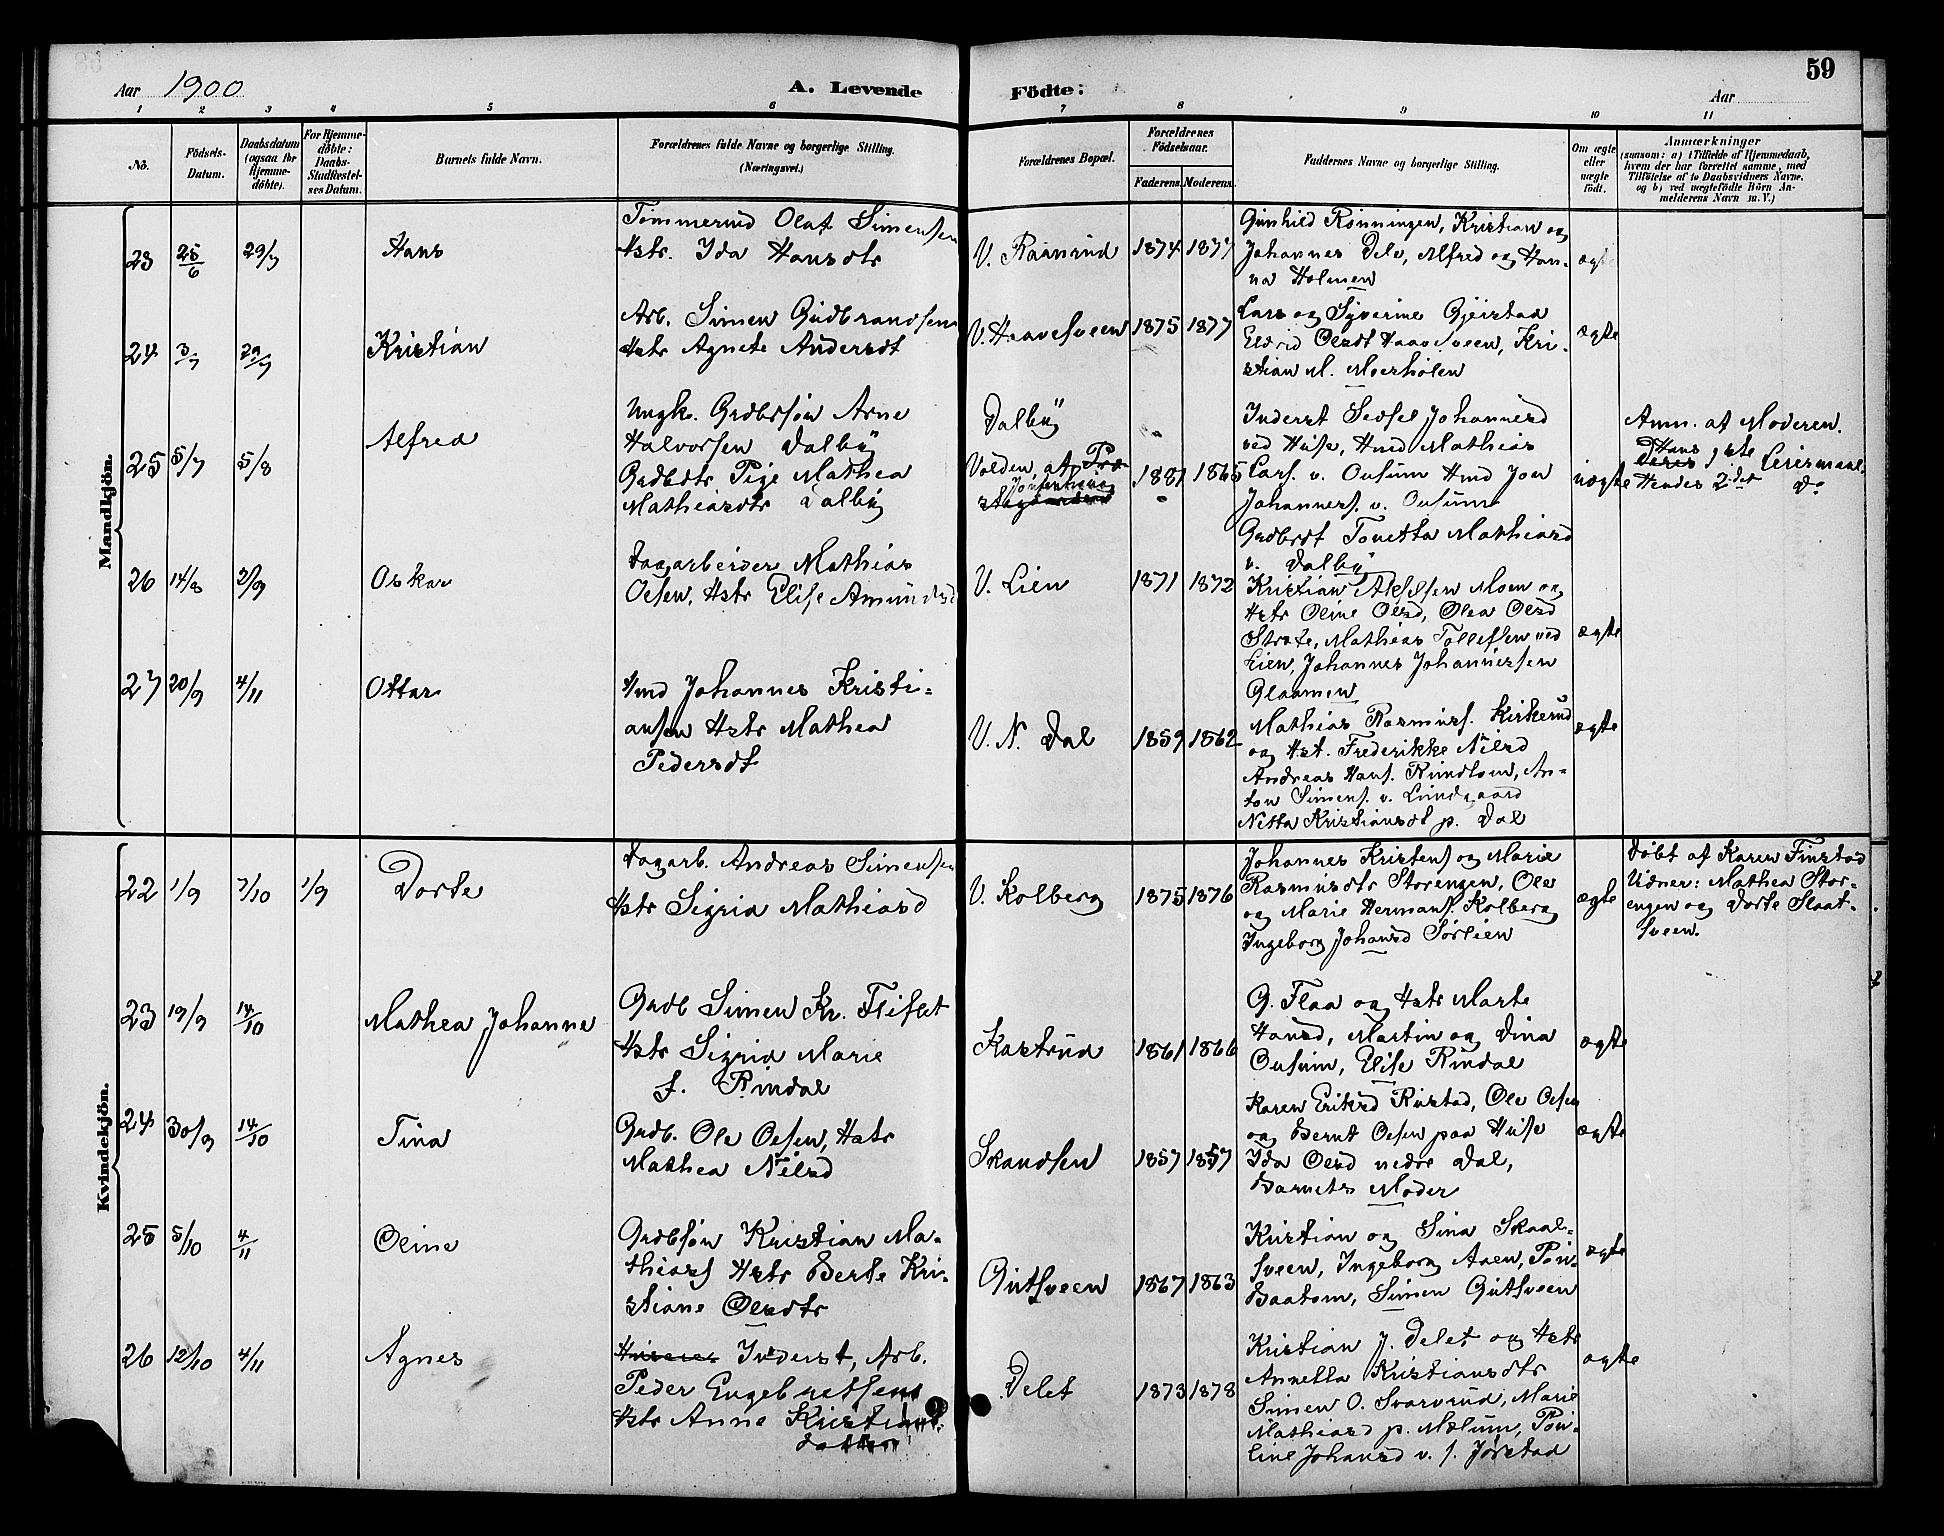 59
Aar 1900
A. Levende Födte:
Aar
1 2 3 4 5 6 7 8 9 10 11
No.
Födsels-
Datum.
Daabsdatum
(ogsaa for
Hjemme-
döbte).
For Hjemme-
döbte:
Daabs-
Stadfæstel-
ses Datum.
Barnets fulde Navn.
Forældrenes fulde Navne og borgerlige Stilling.
(Næringsvei.)
Forældrenes Bopæl.
Forældrenes
Födselsaar.
Faderens. Moderens.
Faddernes Navne og borgerlige Stilling.
Om ægte
eller
uægte
födt.
Anmærkninger
(saasom: a) i Tilfælde af Hjemmedaab,
hvem der har forrettet samme, med
Tilföielse af to Daabsvidners Navne,
og b) ved uægtefödte Börn An-
melderens Navn m. V.)
Mandkjön.
23 25/6 29/7 Hans
Tømmermd Olaf Simensen
Hstr. Ida Hansdtr
V. Raanrud 1874 1877
Gunhild Rønningen, Kristian og
Johannes Delv, Alfred og Han-
na Holmen
ægte
24 3/7 29/7 Kristian
Arb. Simen Gudbrandsen
Hstr Agnete Andersdt
V. Haavesveen 1875 1877
Lars og Syverine Gjeistad
Eldrid Olsdt Haavesveen, Kri-
stian M. Moerholen
ægte
25 5/7 5/8 Alfred
Ungk. Grdbrsøn Arne
Halvorsen Dalby
Grdbdtr Pige Mathea
Mathiasdtr Dalby
Dalby
Volden af
1881 1865
Inderst Sedsel Johannesd
ved Huse, Hmd Mathias
Lars. v. Ousum Hmd Jon
Johanness. v. Ousum
Grdbrdt Tonetta Mathiasd
v. Dalby
uægte
Anm. af Moderen.
Hans 1ste Leiermaal.
Hendes 2det Do
26 14/8 2/9 Oskar
Dagarbeider Mathias
Olsen, Hstr Elise Amundsd
V. Lien 1871 1872
Kristian Moen og
Hstr Oline Olsd, Olea Olsd
Strate, Mathias Tollefsen ved
Lien, Johannes Johannessen
Glaamen
ægte
27 20/9 4/11 Ottar
Hmd Johannes Kristi-
ansen Hstr Mathea
Pedersdt
V. N. Dal 1859 1862
Mathias Rasmuss. Kirkerud
og Hst. Frederikke Nilsd
Andreas Hans. Rundtom, An-
ton Simens. v. Lundgaard
Netta Kristiansdt p. Dal
ægte
Kvindekjön.
22 1/9 7/10 1/9 Dorte
Dagarb. Andreas Simensen
Hstr Sigrid Mathiasd
V. Kolberg 1875 1876
Johannes Kristens og Marie
Rasmusdtr Storengen, Ole
og Marie Hermans. Kolberg
Ingeborg Johansd Sørlien
ægte
Døbt af Karen Finstad
Vidner: Mathea Stor-
engen og Dorte Slaat-
sveen.
23 19/9 14/10 Mathea Johanne
Grdb Simen Kr. Fliflet
Hstr Sigrid Marie
f. Rindal
Kastrud 1861 1866
G. Flaa og Hstr Marte
Hansd, Martin og Dina
Ousum, Elise Rindal
ægte
24 30/9 14/10 Tina
Grdb. Ole Olsen, Hstr
Mathea Nilsd
Skandsen 1857 1857
Karen Eriksd Rustad, Ole Olsen
og Bernt Olsen paa Huse
Ida Olsd nedre Dal,
Barnets Moder
ægte
25 5/10 4/11 Oline
Grdbsøn Kristian Ma-
thias Hstr Berte Kri-
stiane Olsdtr
Gutsveen 1867 1863
Kristian og Sina Skaal-
sveen, Ingeborg Aaen,
Baatom, Simen Gutsveen
ægte
26 12/10 4/11 Agnes
Inderst, Arb.
Peder Engebretsen
Hstr Anne Kristians
datter
Delet 1873 1878
Kristian J. Delet og Hstr
Annetta Kristiansdtr
Simen O. Svarvrud, Marie
Mathiasd p. Mælum, Pau-
line Johansd v. s. Jørstad
ægte